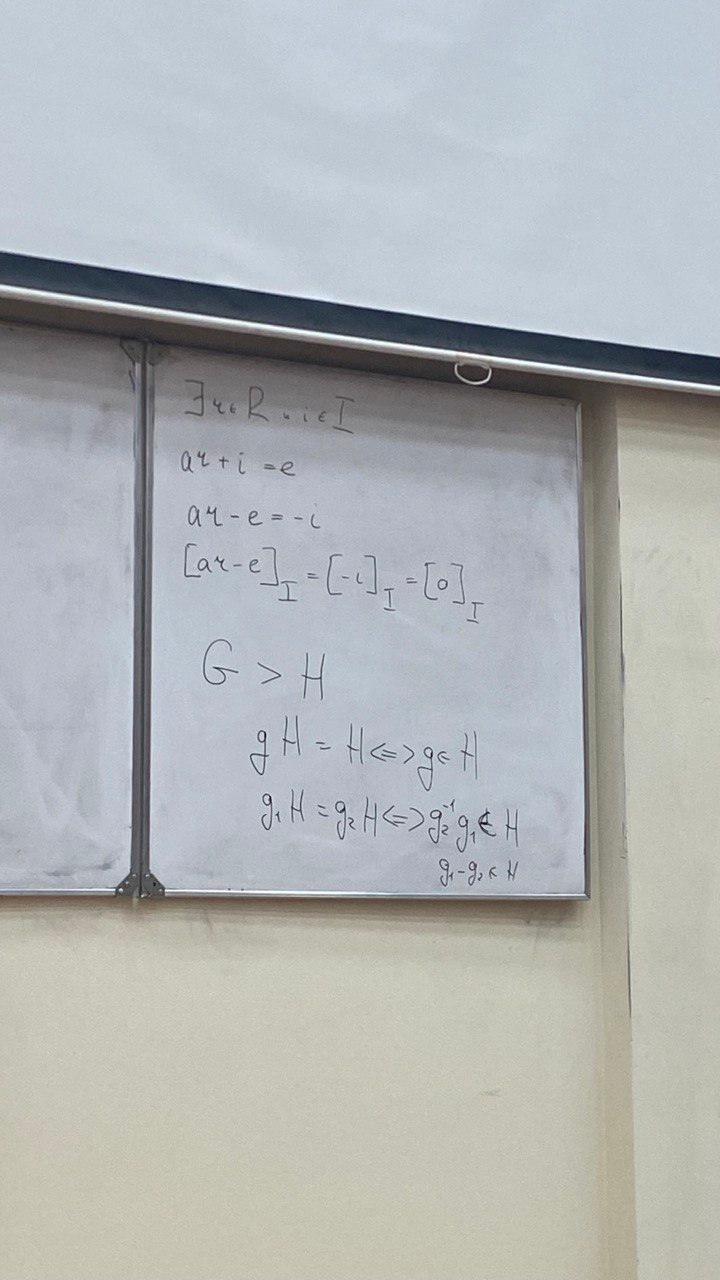 ∃ r ∈ R и i ∈ I
ar + i = e
ar - e = -i
[ar - e]_I = [-i]_I = [0]_I
G > H
gH = H <=> g ∈ H
g₁H = g₂H <=> g₂⁻¹g₁ ∈ H
g₁ - g₂ ∈ H